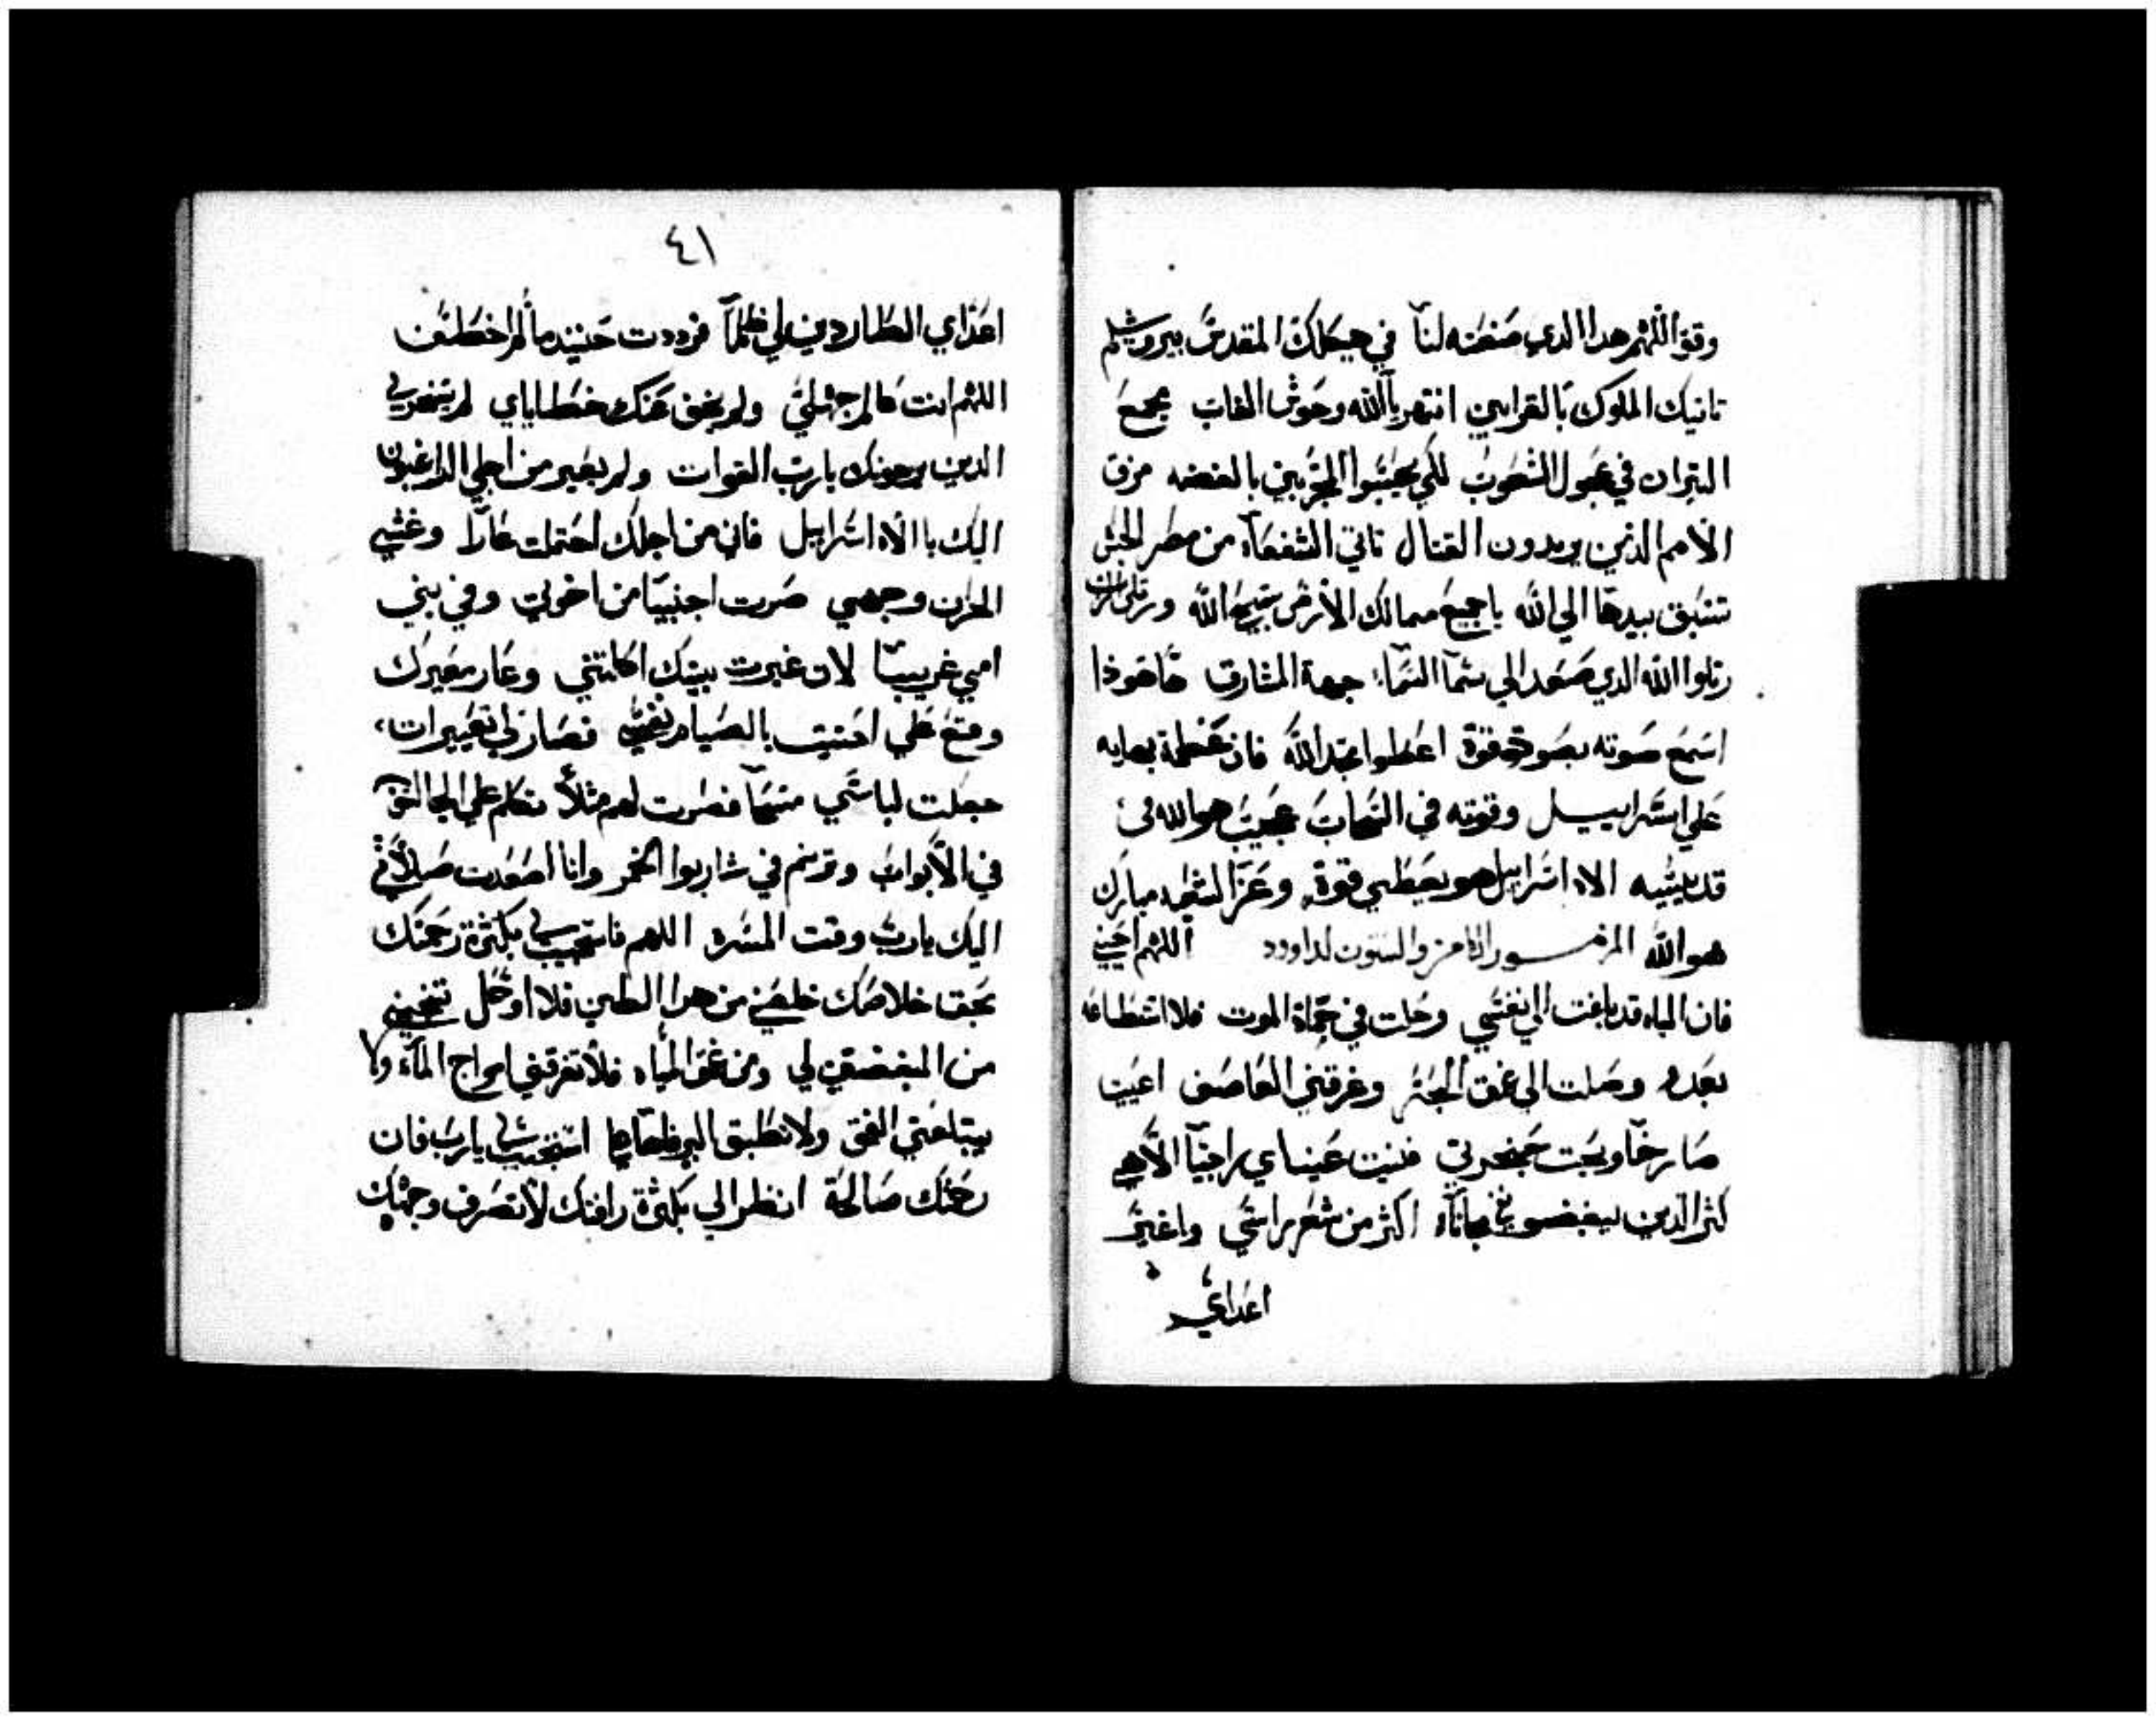 وقو اللهم هدا الدي صنعته لنا في هيكلك المقدس بيروشليم
تاتيك الملوك بالقرابين انتهر ياالله وحوش الغاب مجمع
التيران في عجول الشعوب لكي يجنبوا المجربين بالفضه مزق
الأمم الذين يريدون القتال تاتي الشفعاء من مصر الحبش
تستبق بيدها الي الله ياجميع ممالك الأرض سبحوا الله ورتلوا للرب
رتلوا الله الدي صعد الي سما السما، جهة المشارق هاهوذا
اسمع صوته بصوت قوة اعطوا مجد الله فان عظمة بهايه
علي اسراييل وقوته في السحاب عجيب هو الله في
قديسيه الاه اسراييل هو يعطي قوة وعزا لشعبه مبارك
هو الله المزمور التامن والستون لداوود اللهم احيني
فان المياه قد بلغت الي نفسي وحلت في حماة الموت فلا استطاعه
بعده وصلت الي عمق البحر وغرقتني العاصف اعييت
صارخا وبحت حنجرتي فنيت عيناي راجيا الاهي
كثر الدين يبغضوني مجانا اكثر من شعر راسي واعتز
اعداي
٤١
اعداي الطاردين لي ظلما فرددت حنيئد ما لم اخطف
اللهم انت عالم جهلتي ولم يخف عنك خطاياي لم يخز بي
الدين يرجونك يارب القوات ولم يعير من اجلي الراغبون
اليك يا الاه اسراييل فاني من اجلك احتملت عارا وغشي
الحزن وجهي صرت اجنبيا من اخوتي وفي بني
امي غريبا لان غيرت بيتك اكلتني وعار معيرك
وقع علي احنيت بالصيام نفسي فصار لي تعييرات،
جعلت لباسي مسحا فصرت لهم مثلا تكلم علي الجالسون
في الأبواب وترنم في شاربوا الخمر وانا اصعدت صلاتي
اليك يارب وقت المسره اللهم فاستجيب لي بكثرة رحمتك
بحق خلاصك خلصني من هدا الطين فلا اوحل تنجيني
من المبغضين لي ومن عمق المياه فلا تغرقني امواج الماء ولا
يبتلعني العمق ولا تطبق البير علي فاها استجيب لي يارب فان
رحمتك صالحة انظر الي بكثرة رافتك لا تصرف وجهك